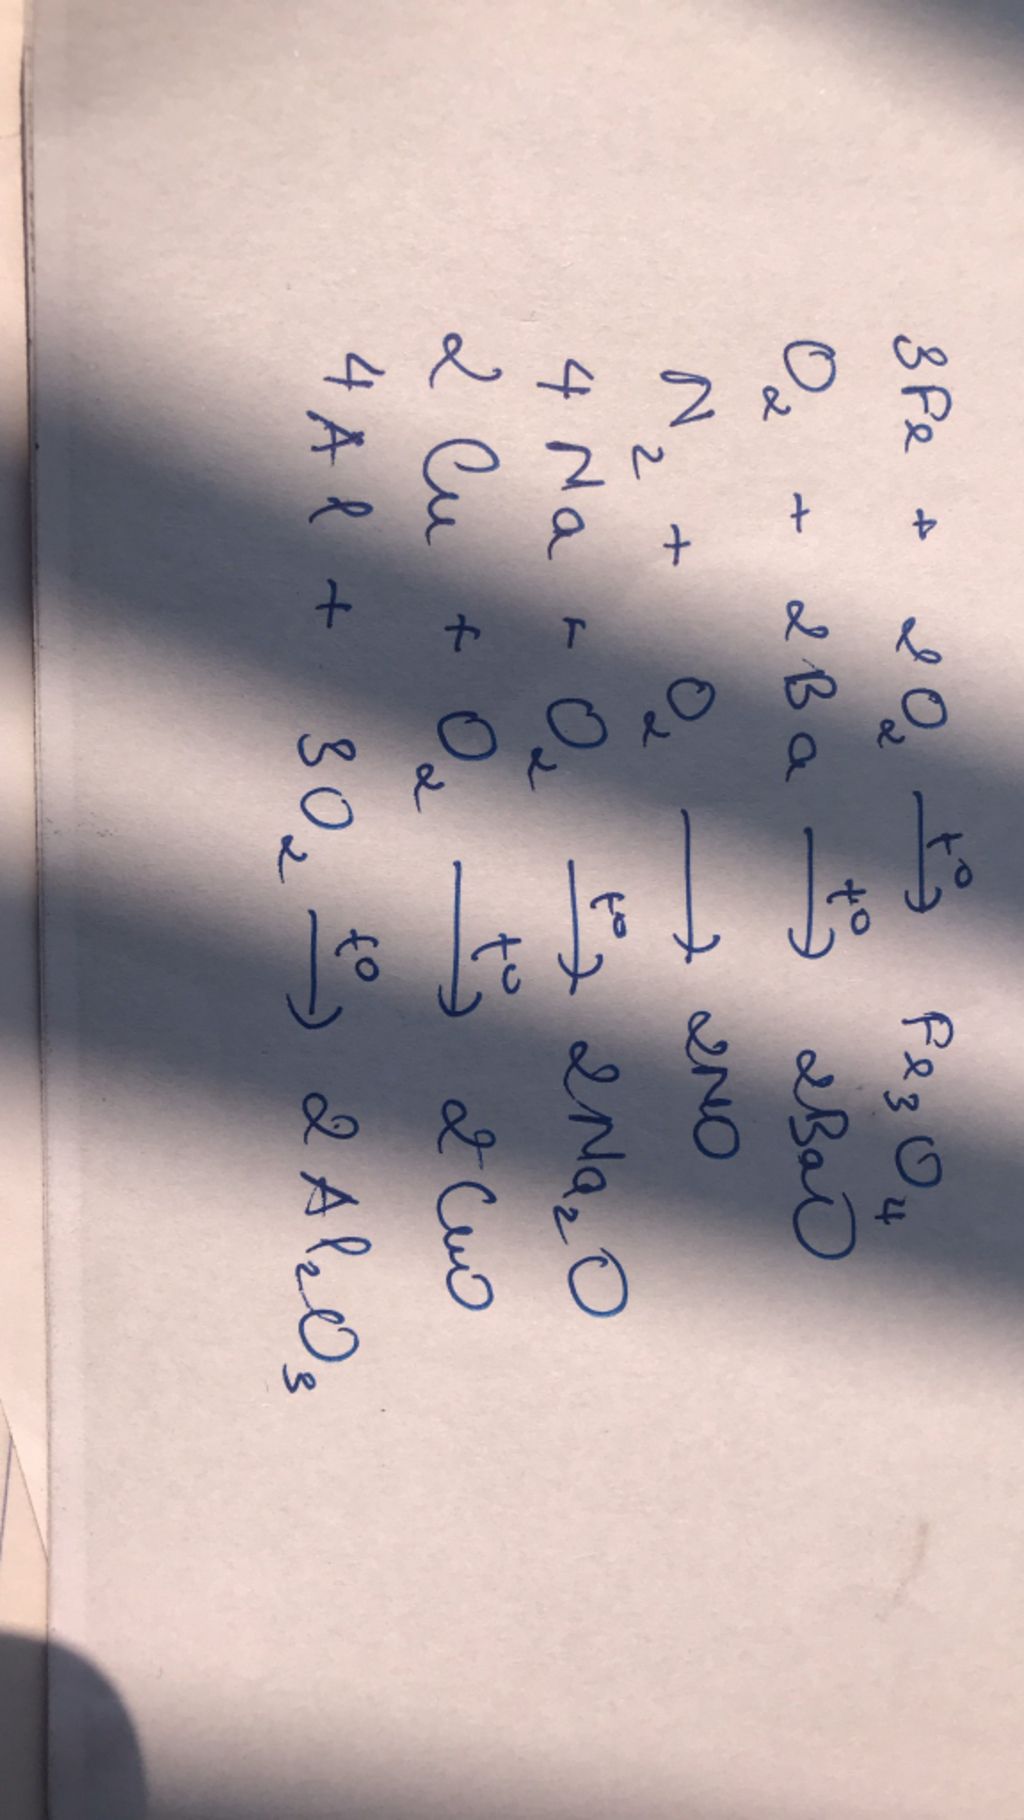 3Fe + 2O₂ —t°→ Fe₃O₄
O₂ + 2Ba —t°→ 2BaO
N₂ + O₂ → 2NO
4Na + O₂ —t°→ 2Na₂O
2Cu + O₂ —t°→ 2CuO
4Al + 3O₂ —t°→ 2Al₂O₃